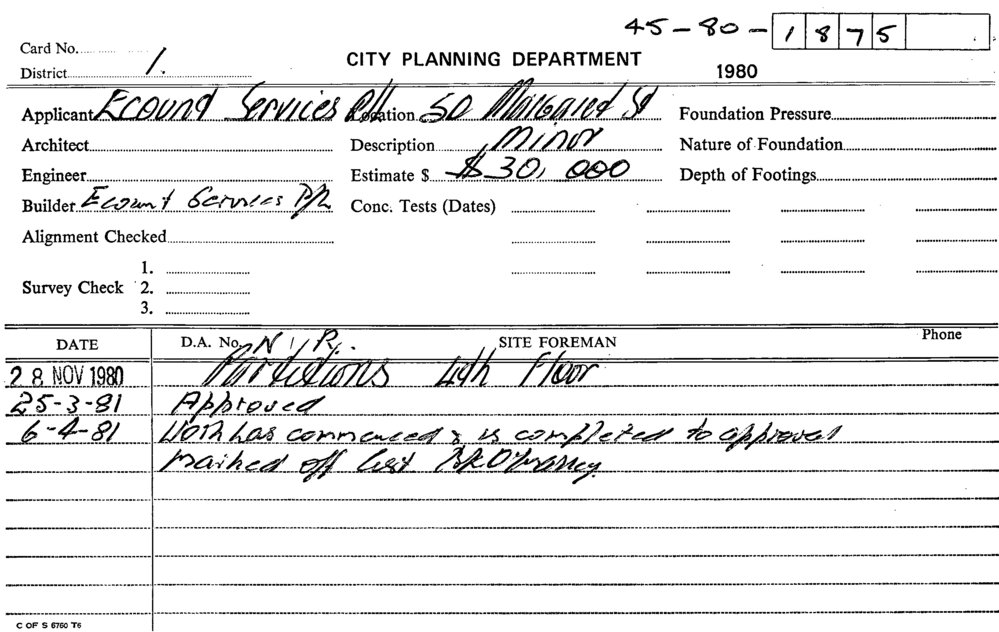 45-80-1875
Card No.
CITY PLANNING DEPARTMENT
District 1.
1980
Applicant Ecount Services P/L Location 50 Margaret St Foundation Pressure
Architect Description Minor Nature of Foundation
Engineer Estimate $ $30,000 Depth of Footings
Builder Ecount Services P/L Conc. Tests (Dates)
Alignment Checked
1.
Survey Check 2.
3.
DATE D.A. No. N/R. SITE FOREMAN Phone
28 NOV 1980 Partitions 4th Floor
25-3-81 Approved
6-4-81 Work has commenced & is completed to approval
marked off
C OF S 6760 T6